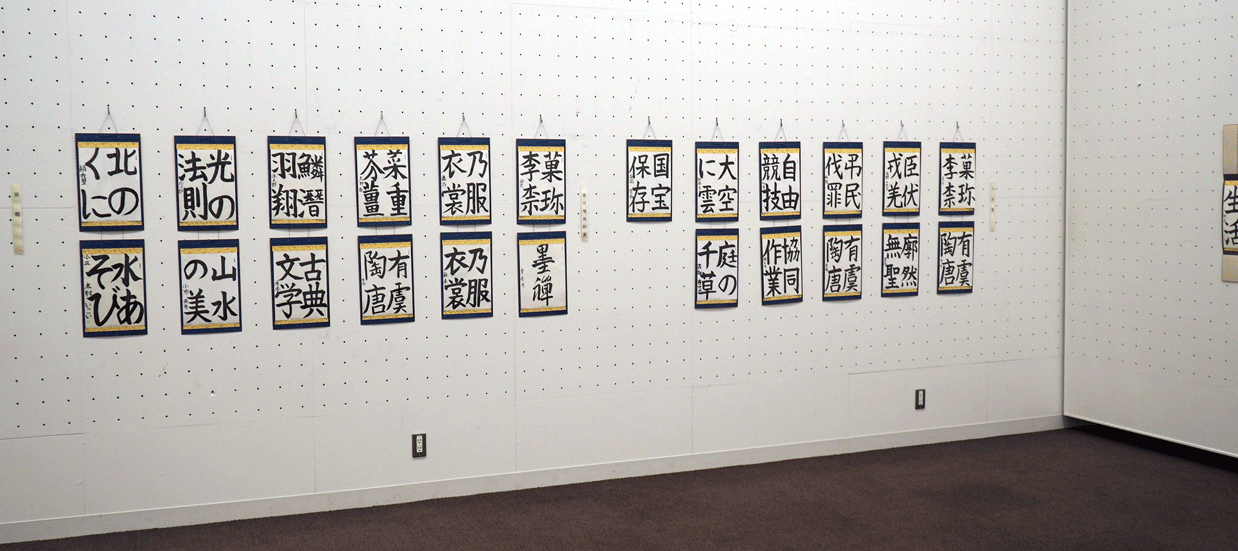 北の
くに
光の
法則
鱗潛
羽翔
菜重
芥薑
乃服
衣裳
菓珎
李柰
水あ
そび
山水
の美
古典
文学
有虞
陶唐
乃服
衣裳
墨
国宝
保存
大空
に雲
自由
競技
弔民
伐罪
臣伏
戎羌
菓珎
李柰
庭の
千草
協同
作業
有虞
陶唐
廓然
無聖
有虞
陶唐
生活